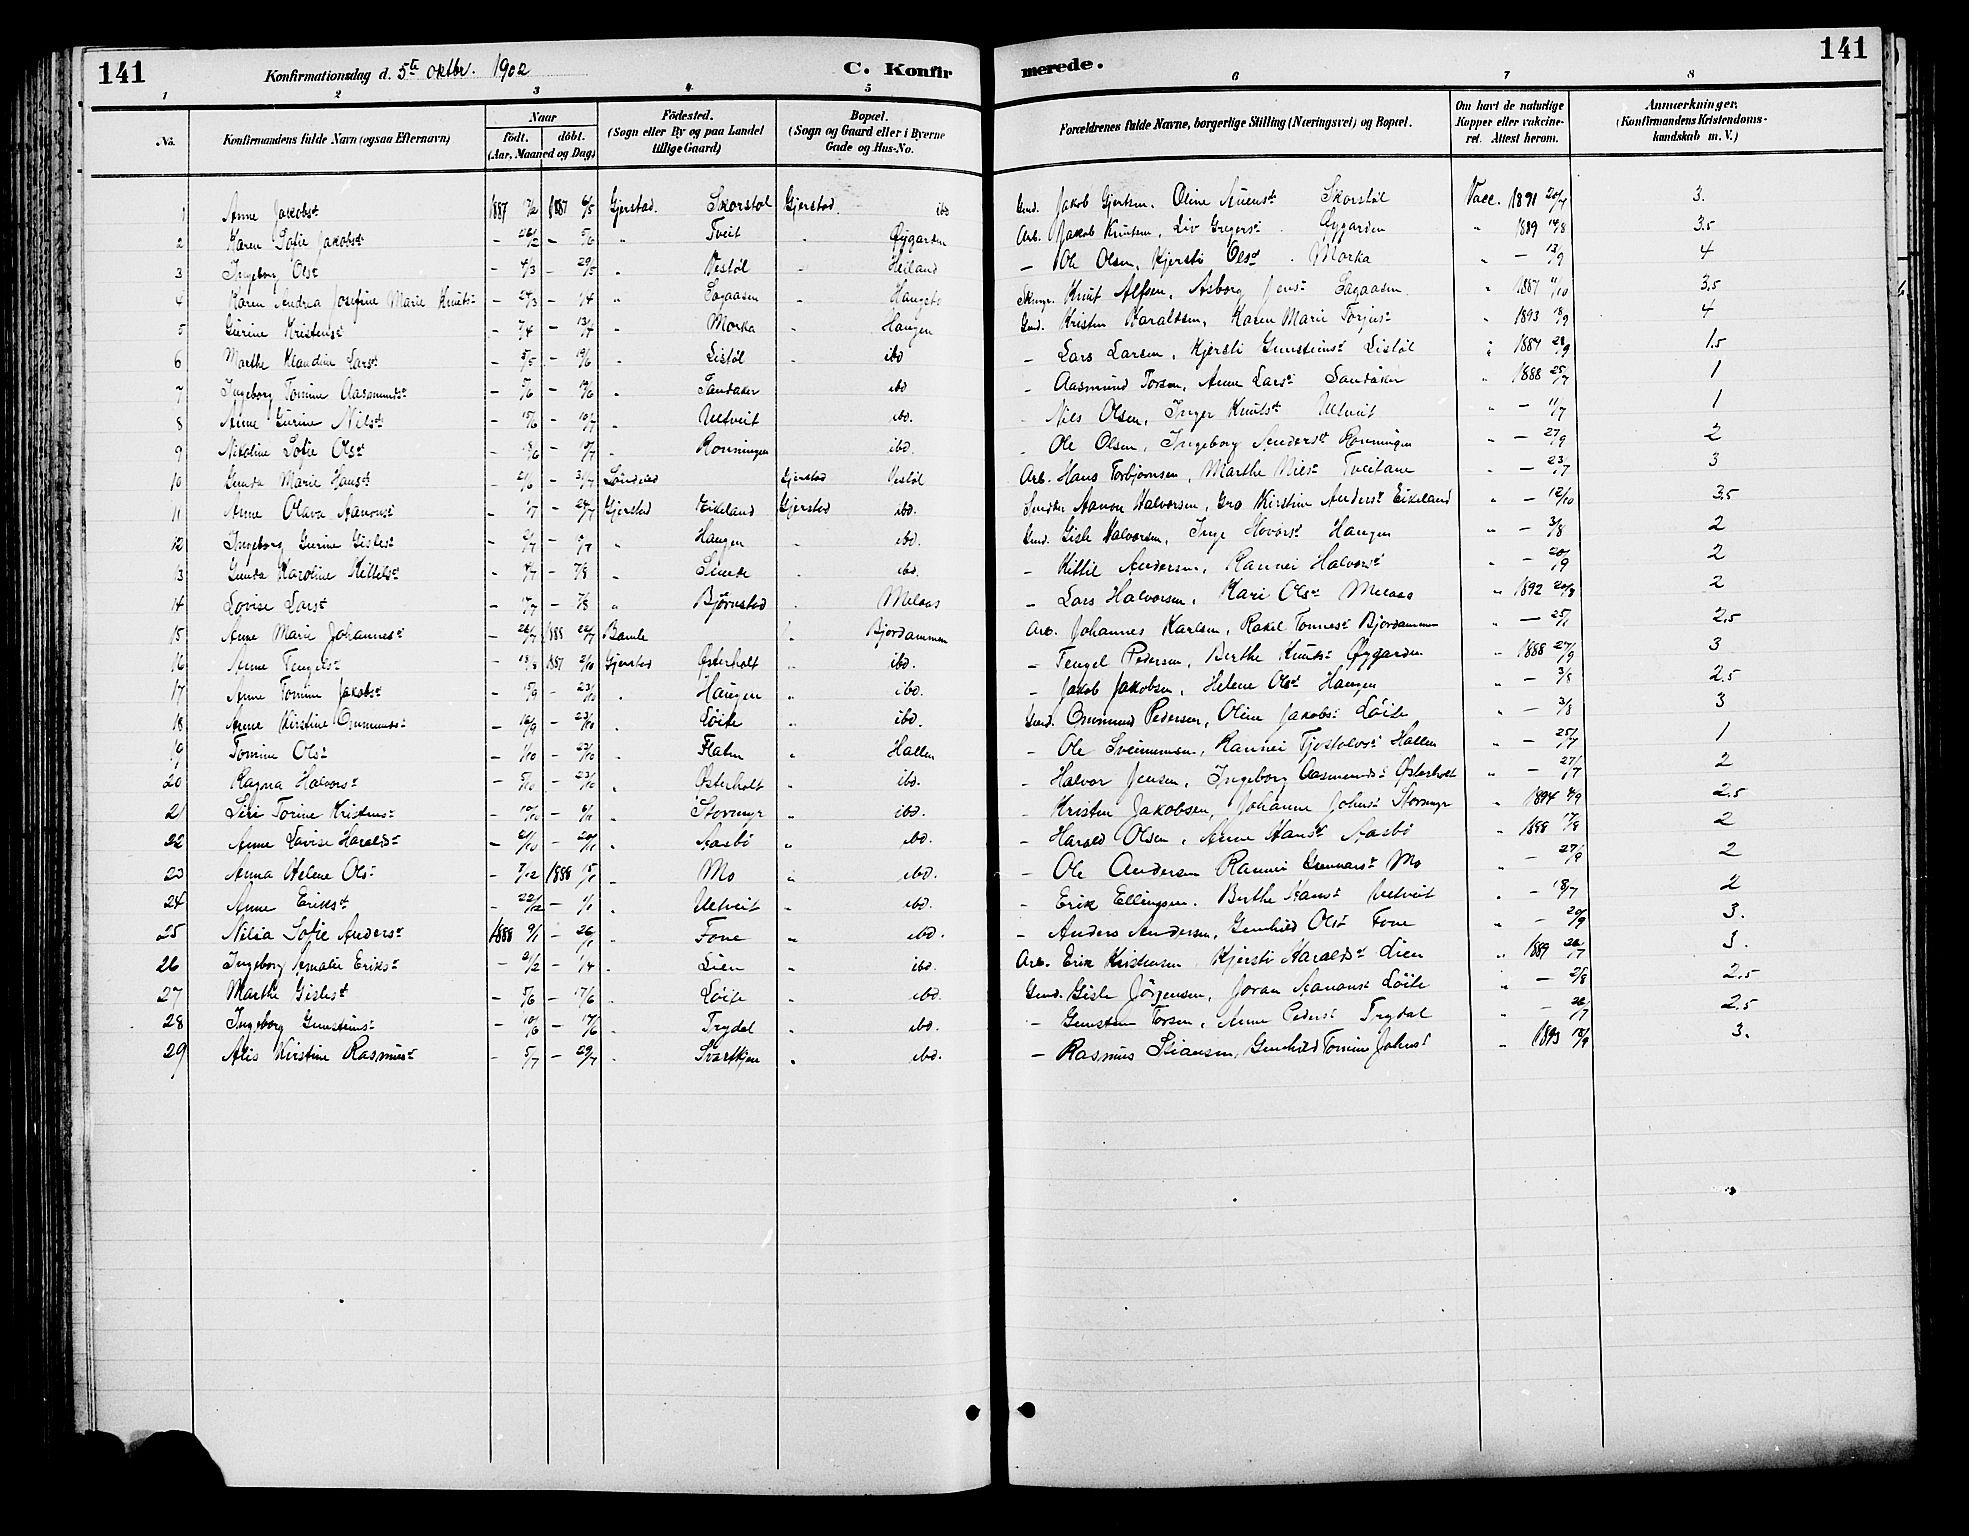 141
Konfirmationsdag d. 5te oktbr. 1902
C. Konfir
merede.
141
1 2 3 4 5 6 7 8
No. Konfirmandens fulde Navn (ogsaa Efternavn) Naar født. døbt. (Aar, Maaned og Dag) Födested. (Sogn eller By og paa Landet tillige Gaard) Bopæl. (Sogn og Gaard eller i Byerne Gade og Hus-No. Forældrenes fulde Navne, borgerlige Stilling (Næringsvei) og Bopæl. Om havt de naturlige Kopper eller vakcineret. Attest herom. Anmærkninger. (Konfirmandens Kristendomskundskab m. V.)
1 Anne Jakobsd 1887 1887 6/5 Gjerstad. Skorstøl Gjerstad. ibd Gmd. Jakob Gjertsen, Oline Auensd Skorstøl Vacc. 1891 20/7 3.
2 Karen Sofie Jakobsd - 26/2 - 5/6 " Tveit " Øygarden Arb. Jakob Knutsen, Liv Gregersd. Øygarden " 1889 14/8 3.5
3 Ingeborg Olsd - 4/3 - 29/5 " Vestøl " Heiland - Ole Olsen, Kjersti Olsd. Morka " - 13/9 4
4 Karen Andrea Josefine Marie Knutsd - 24/3 - 1/4 " Eagaasen " Haugsto Knut Alfsen, Asborg Jensd Eagaasen " 1887 11/10 3.5
5 Gurine Kristensd - 7/4 - 13/4 " Morka " Haugen Gmd. Kristen Haraldsen, Karen Marie Torjusd " 1893 18/9 4
6 Marthe Klaudine Larsd - 5/5 - 19/6 " Listøl ibd - Lars Larsen, Kjersti Gunsteinsd Listøl " 1887 28/9 1.5
7 Ingeborg Tomine Aasmundsd - 5/6 - 19/6 " Sandaker ibd - Aasmund Torsen, Anne Larsd Sandåker " 1888 25/7 1
8 Anne Gurine Nilsd - 15/6 - 10/7 " Ueltveit ibd. - Nils Olsen, Inger Knutsd Ueltveit " - 11/7 1
9 Nikoline Sofie Olsd - 18/6 - 10/7 " Rønningen ibd. - Ole Olsen, Ingeborg Andersd Rønningen " - 27/9 2
10 Gunda Marie Hansd - 21/6 - 31/7 Søndeled Gjerstad Vestøl Arb. Hans Torbjørnsen, Marthe Nilsd Tveitane " - 23/7 3
11 Anne Olava Aanonsd - 1/7 - 24/7 Gjerstad Eikeland Gjerstad ibd. Aanon Halvorsen, Gro Kirstine Andersd Eikeland " - 12/10 3.5
12 Ingeborg Gurine Gislesd - 2/7 - " Haugen " ibd. Gmd. Gisle Halvorsen, Inge Hovorsd Haugen " - 3/8 2
13 Gunda Karoline Kittelsd - 4/7 - 7/8 " Lunde " ibd. - Kittil Andersen, Rannei Halvorsd - 20/9 2
14 Lovise Larsd - 17/7 - 7/8 " Bjørnstad " Melaas - Lars Halvorsen, Kari Olsd Melaas " 1892 20/8 2
15 Anne Marie Johannesd - 26/7 1888 22/7 Bamle Bjordammen Arb. Johannes Karlsen, Rakel Tonnesd Bjordammen " - 25/7 2.5
16 Anne Tengelsd - 18/8 1887 2/10 Gjerstad Østerholt " ibd. - Tengel Pedersen, Berthe Knutsd Øygarden " 1888 27/9 3
17 Anne Tomine Jakobsd - 15/9 - 23/10 " Haugen " ibd. - Jakob Jakobsen, Helene Olsd Haugen " - 3/8 2.5
18 Anne Kirstine Ommundsd - 16/9 - 23/10 " Löite " ibd. Gmd. Ommund Pedersen, Oline Jakobsd Löite " - 3/8 3
19 Tomine Olsd - 1/10 - 23/10 " Flaten " Hallen - Ole Sveinunsen, Rannei Tjostolvsd Hallen " - 25/7 1
20 Ragna Halvorsd - 5/10 - 23/10 " Østerholt " ibd. - Halvor Jensen, Ingeborg Aasmundsd Østerholt " - 27/7 2
21 Siri Torine Kristensd - 10/10 - 6/11 " Stormyr " ibd. - Kristen Jakobsen, Johanne Johnsd Stormyr " 1894 4/9 2.5
22 Anne Lovise Haraldsd - 21/10 - 20/11 " Aasbö " ibd. - Harald Olsen, Anne Hansd Aasbö " 1888 17/8 2
23 Anna Helene Olsd - 7/12 1888 15/1 " Mo " ibd. - Ole Andersen Rannei Gunnarsd Mo " - 27/9 2
24 Anne Eriksd - 22/12 - 1/1 " Ueltveit " ibd. - Erik Ellingsen. Berthe Hansd Ueltveit " - 18/7 2
25 Nilia Sofie Andersd 1888 9/1 - 26/1 " Fone " ibd. - Anders Andersen, Gunhild Olsd Fone " - 20/9 3.
26 Ingeborg Amalie Eriksd - 2/2 - 1/4 " Lien " ibd. Arb. Erik Kristensen, Kjersti Haraldsd Lien " 1889 26/7 3.
27 Marthe Gislesd - 5/6 - 17/6 " Löite " ibd. Gmd. Gisle Jörgensen, Joran Aanonsd Löite " - 2/8 2.5
28 Ingeborg Gunsteinsd - 10/6 - 17/6 " Trydal " ibd. - Gunsten Torsen, Anne Pedersd Trydal " - 26/7 2.5
29 Alis Kirstine Rasmusd - 5/7 - 29/7 " Svartkjen " ibd. - Rasmus Stiansen, Gunhild Tomine Johnsd " 1893 18/9 3.